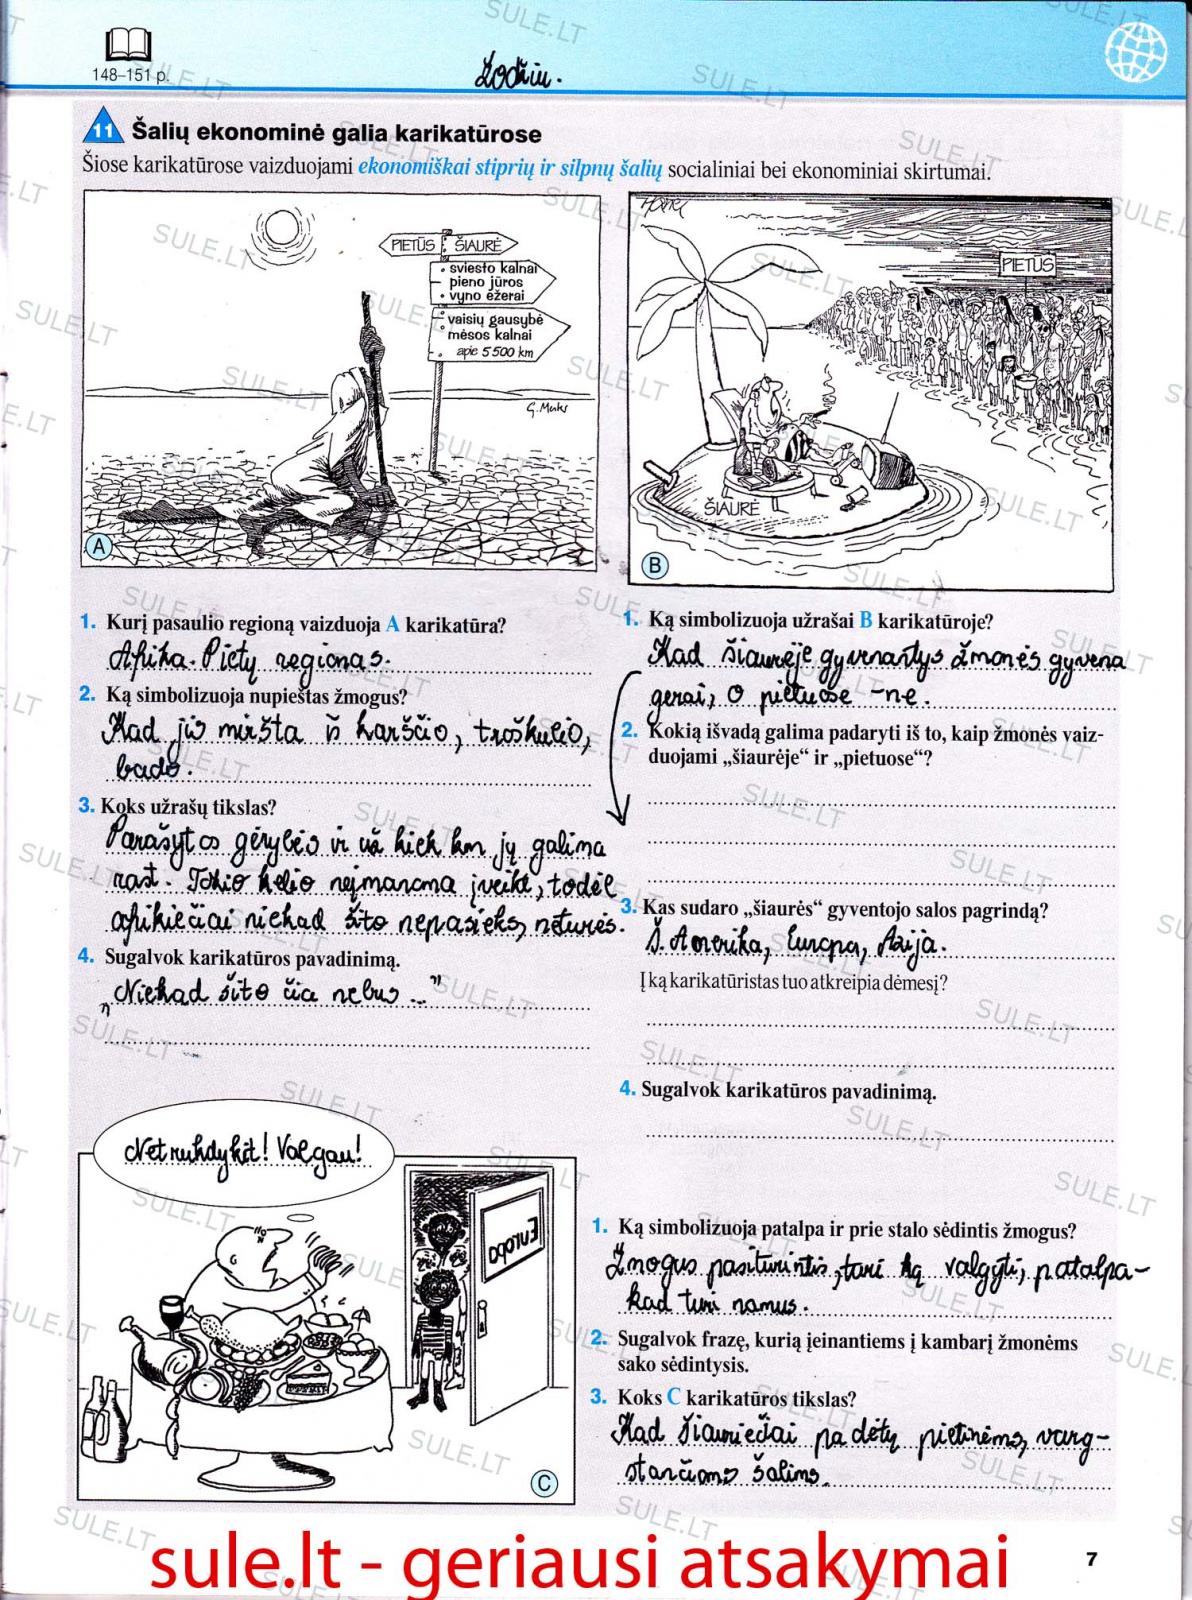 148–151 p.
Žodžiu.
11 Šalių ekonominė galia karikatūrose
Šiose karikatūrose vaizduojami ekonomiškai stiprių ir silpnų šalių socialiniai bei ekonominiai skirtumai.
PIETŪS ŠIAURĖ
• sviesto kalnai
– pieno jūros
• vyno ežerai
vaisių gausybė
mėsos kalnai
apie 5500 km
A
PIETŪS
ŠIAURĖ
B
1. Kurį pasaulio regioną vaizduoja A karikatūra?
Afrika. Pietų regionas.
2. Ką simbolizuoja nupieštas žmogus?
Kad jis miršta iš karščio, troškulio,
bado.
3. Koks užrašų tikslas?
Parašytos gėrybės ir už kiek km jų galima
rast. Tokio kelio neįmanoma įveikt, todėl
afrikiečiai niekad šito nepasieks, neturės.
4. Sugalvok karikatūros pavadinimą.
„Niekad šito čia nebus..."
1. Ką simbolizuoja užrašai B karikatūroje?
Kad šiaurėje gyvenantys žmonės gyvena
gerai, o pietuose – ne.
2. Kokią išvadą galima padaryti iš to, kaip žmonės vaiz-
duojami „šiaurėje“ ir „pietuose“?
3. Kas sudaro „šiaurės“ gyventojo salos pagrindą?
Š. Amerika, Europa, Azija.
Į ką karikatūristas tuo atkreipia dėmesį?
4. Sugalvok karikatūros pavadinimą.
Netrukdykit! Valgau!
Europa
C
1. Ką simbolizuoja patalpa ir prie stalo sėdintis žmogus?
Žmogus pasiturintis, turi ką valgyti, patalpa-
kad turi namus.
2. Sugalvok frazę, kurią įeinantiems į kambarį žmonėms
sako sėdintysis.
3. Koks C karikatūros tikslas?
Kad šiauriečiai padėtų pietinėms, varg-
stančioms šalims.
sule.lt - geriausi atsakymai
7
SULE.LT